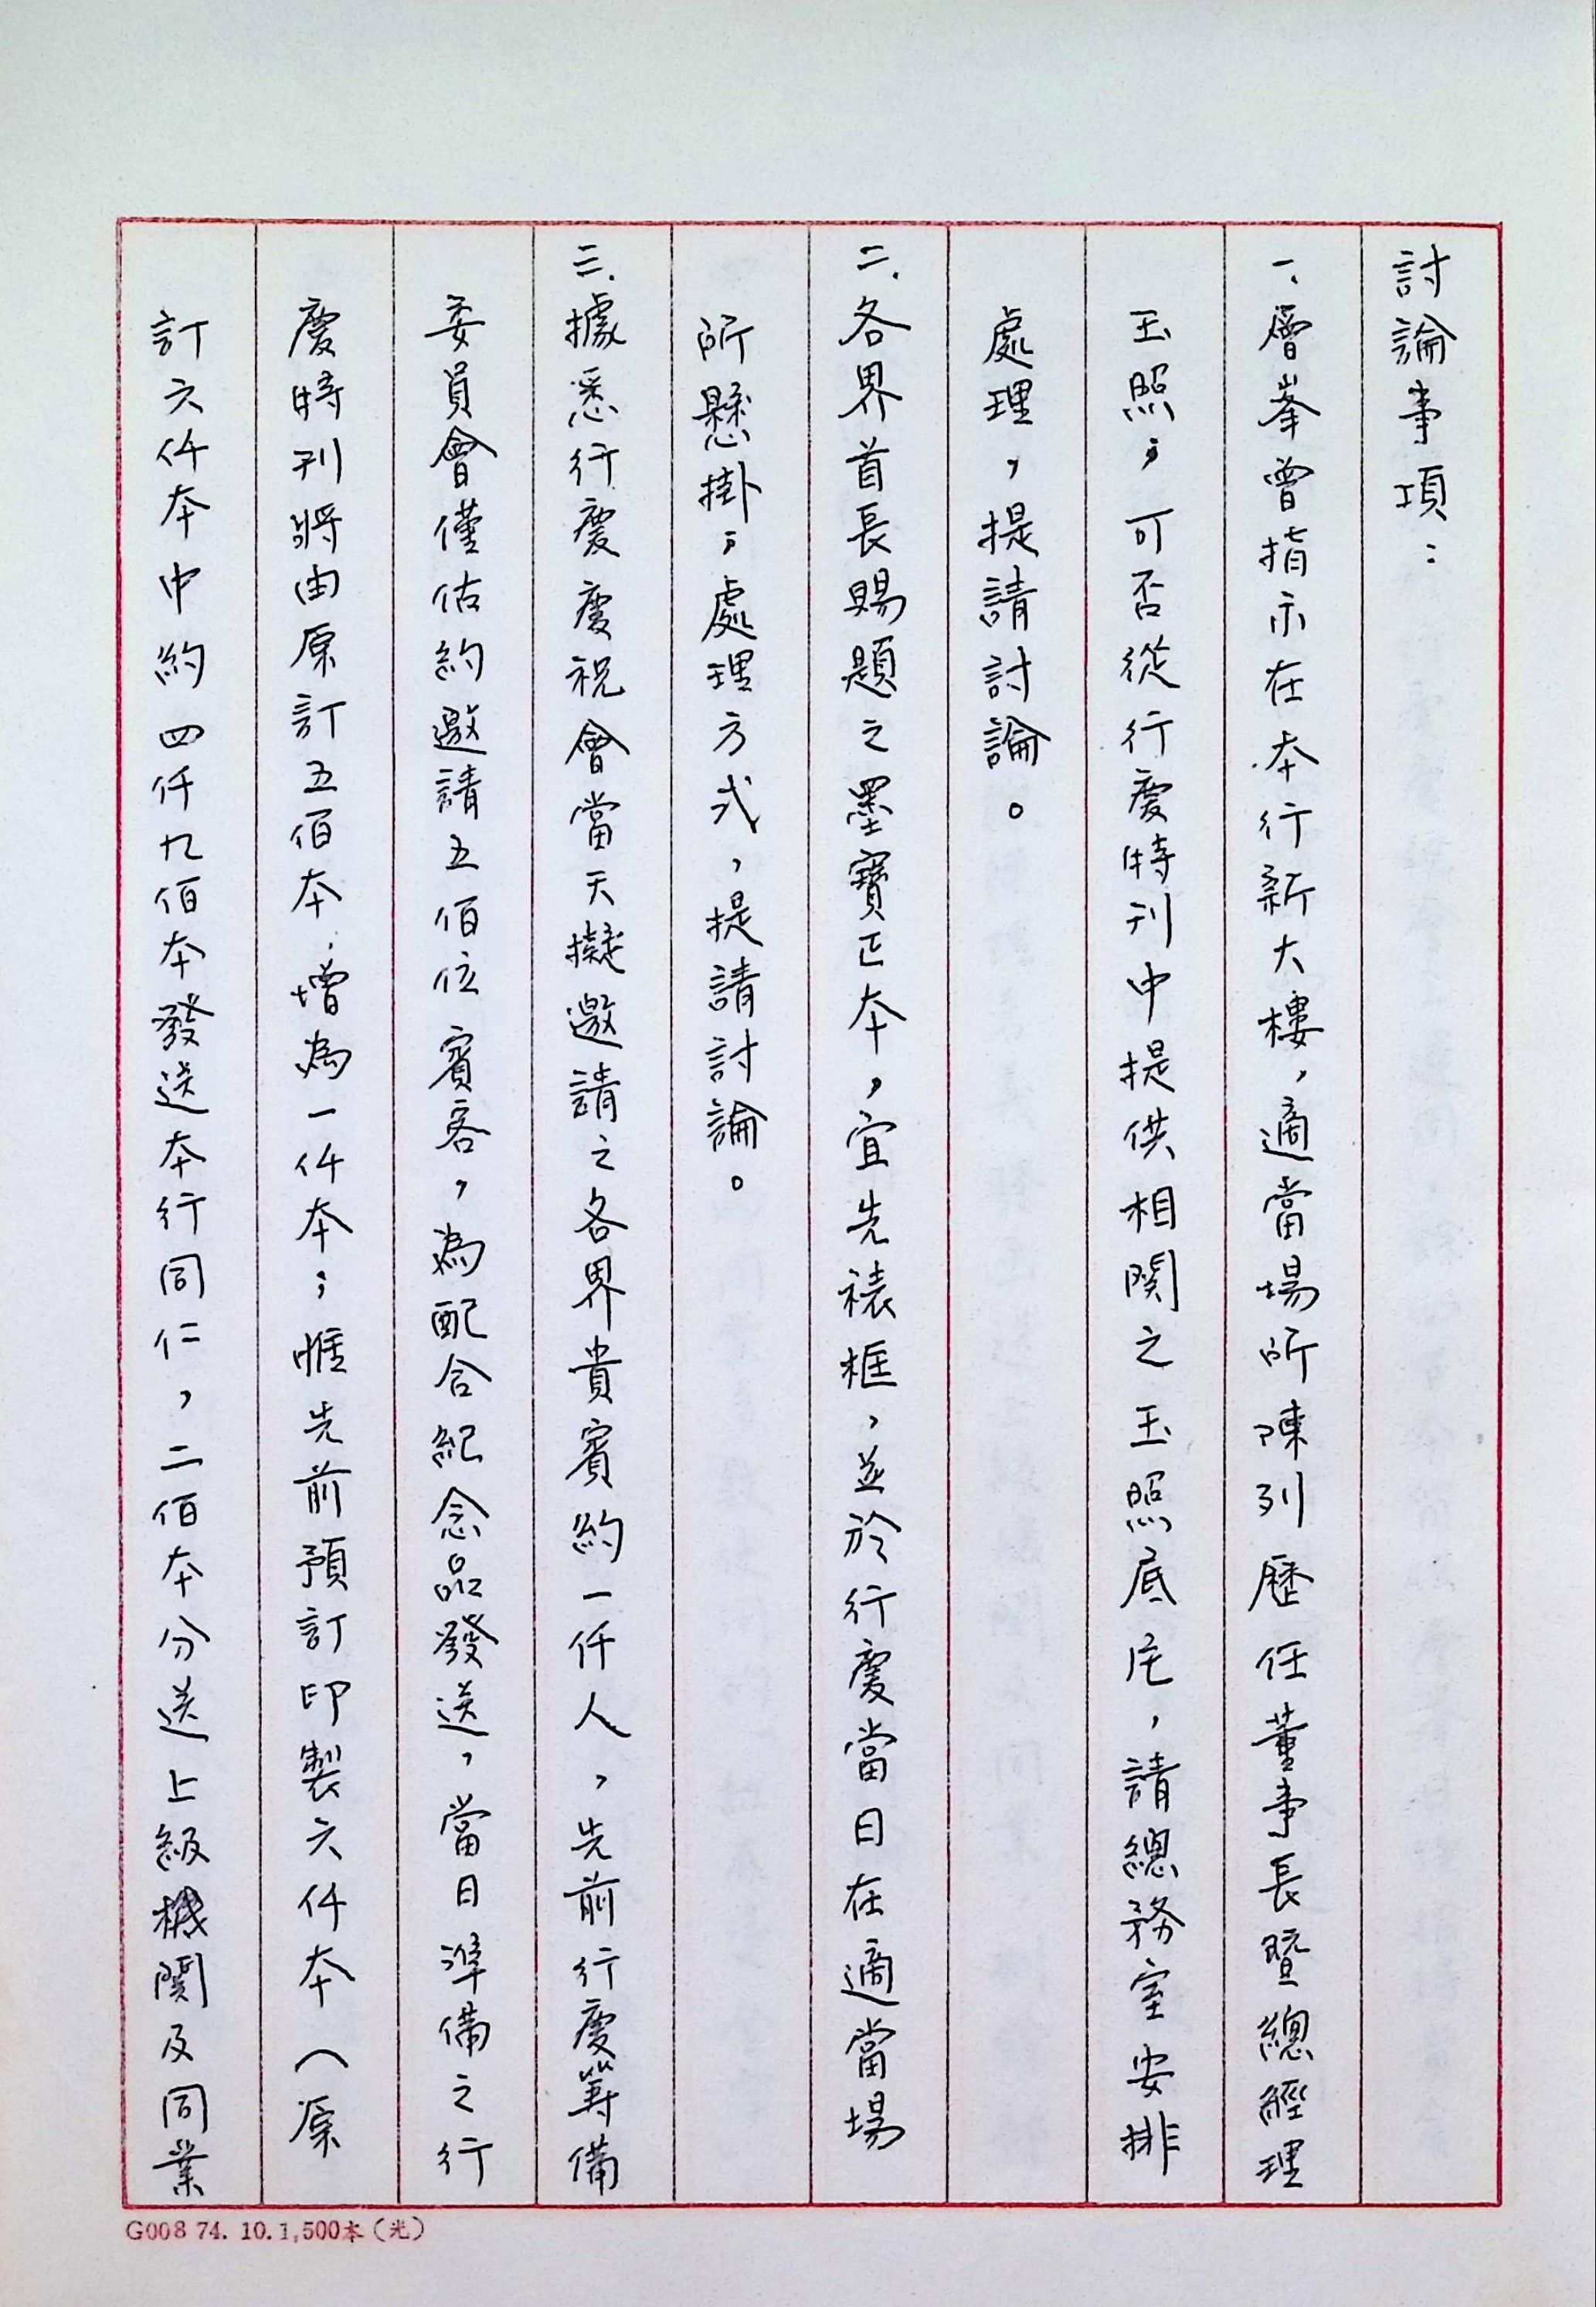 討論事項：
一、層峯曾指示在本行新大樓，適當場所陳列歷任董事長暨總經理
玉照，可否從行慶特刊中提供相関之玉照底片，請總務室安排
處理，提請討論。
二、各界首長賜題之墨寶正本，宜先裱框，並於行慶當日在適當場
所懸掛；處理方式，提請討論。
三、據悉行慶慶祝會當天擬邀請之各界貴賓約一仟人，先前行慶籌備
委員會僅估約邀請五佰位賓客，為配合紀念品發送，當日準備之行
慶特刊將由原訂五佰本增為一仟本；惟先前預訂印製六仟本（原
訂六仟本中約四仟九佰本發送本行同仁，二佰本分送上級機関及同業
G008 74. 10. 1,500本（光）